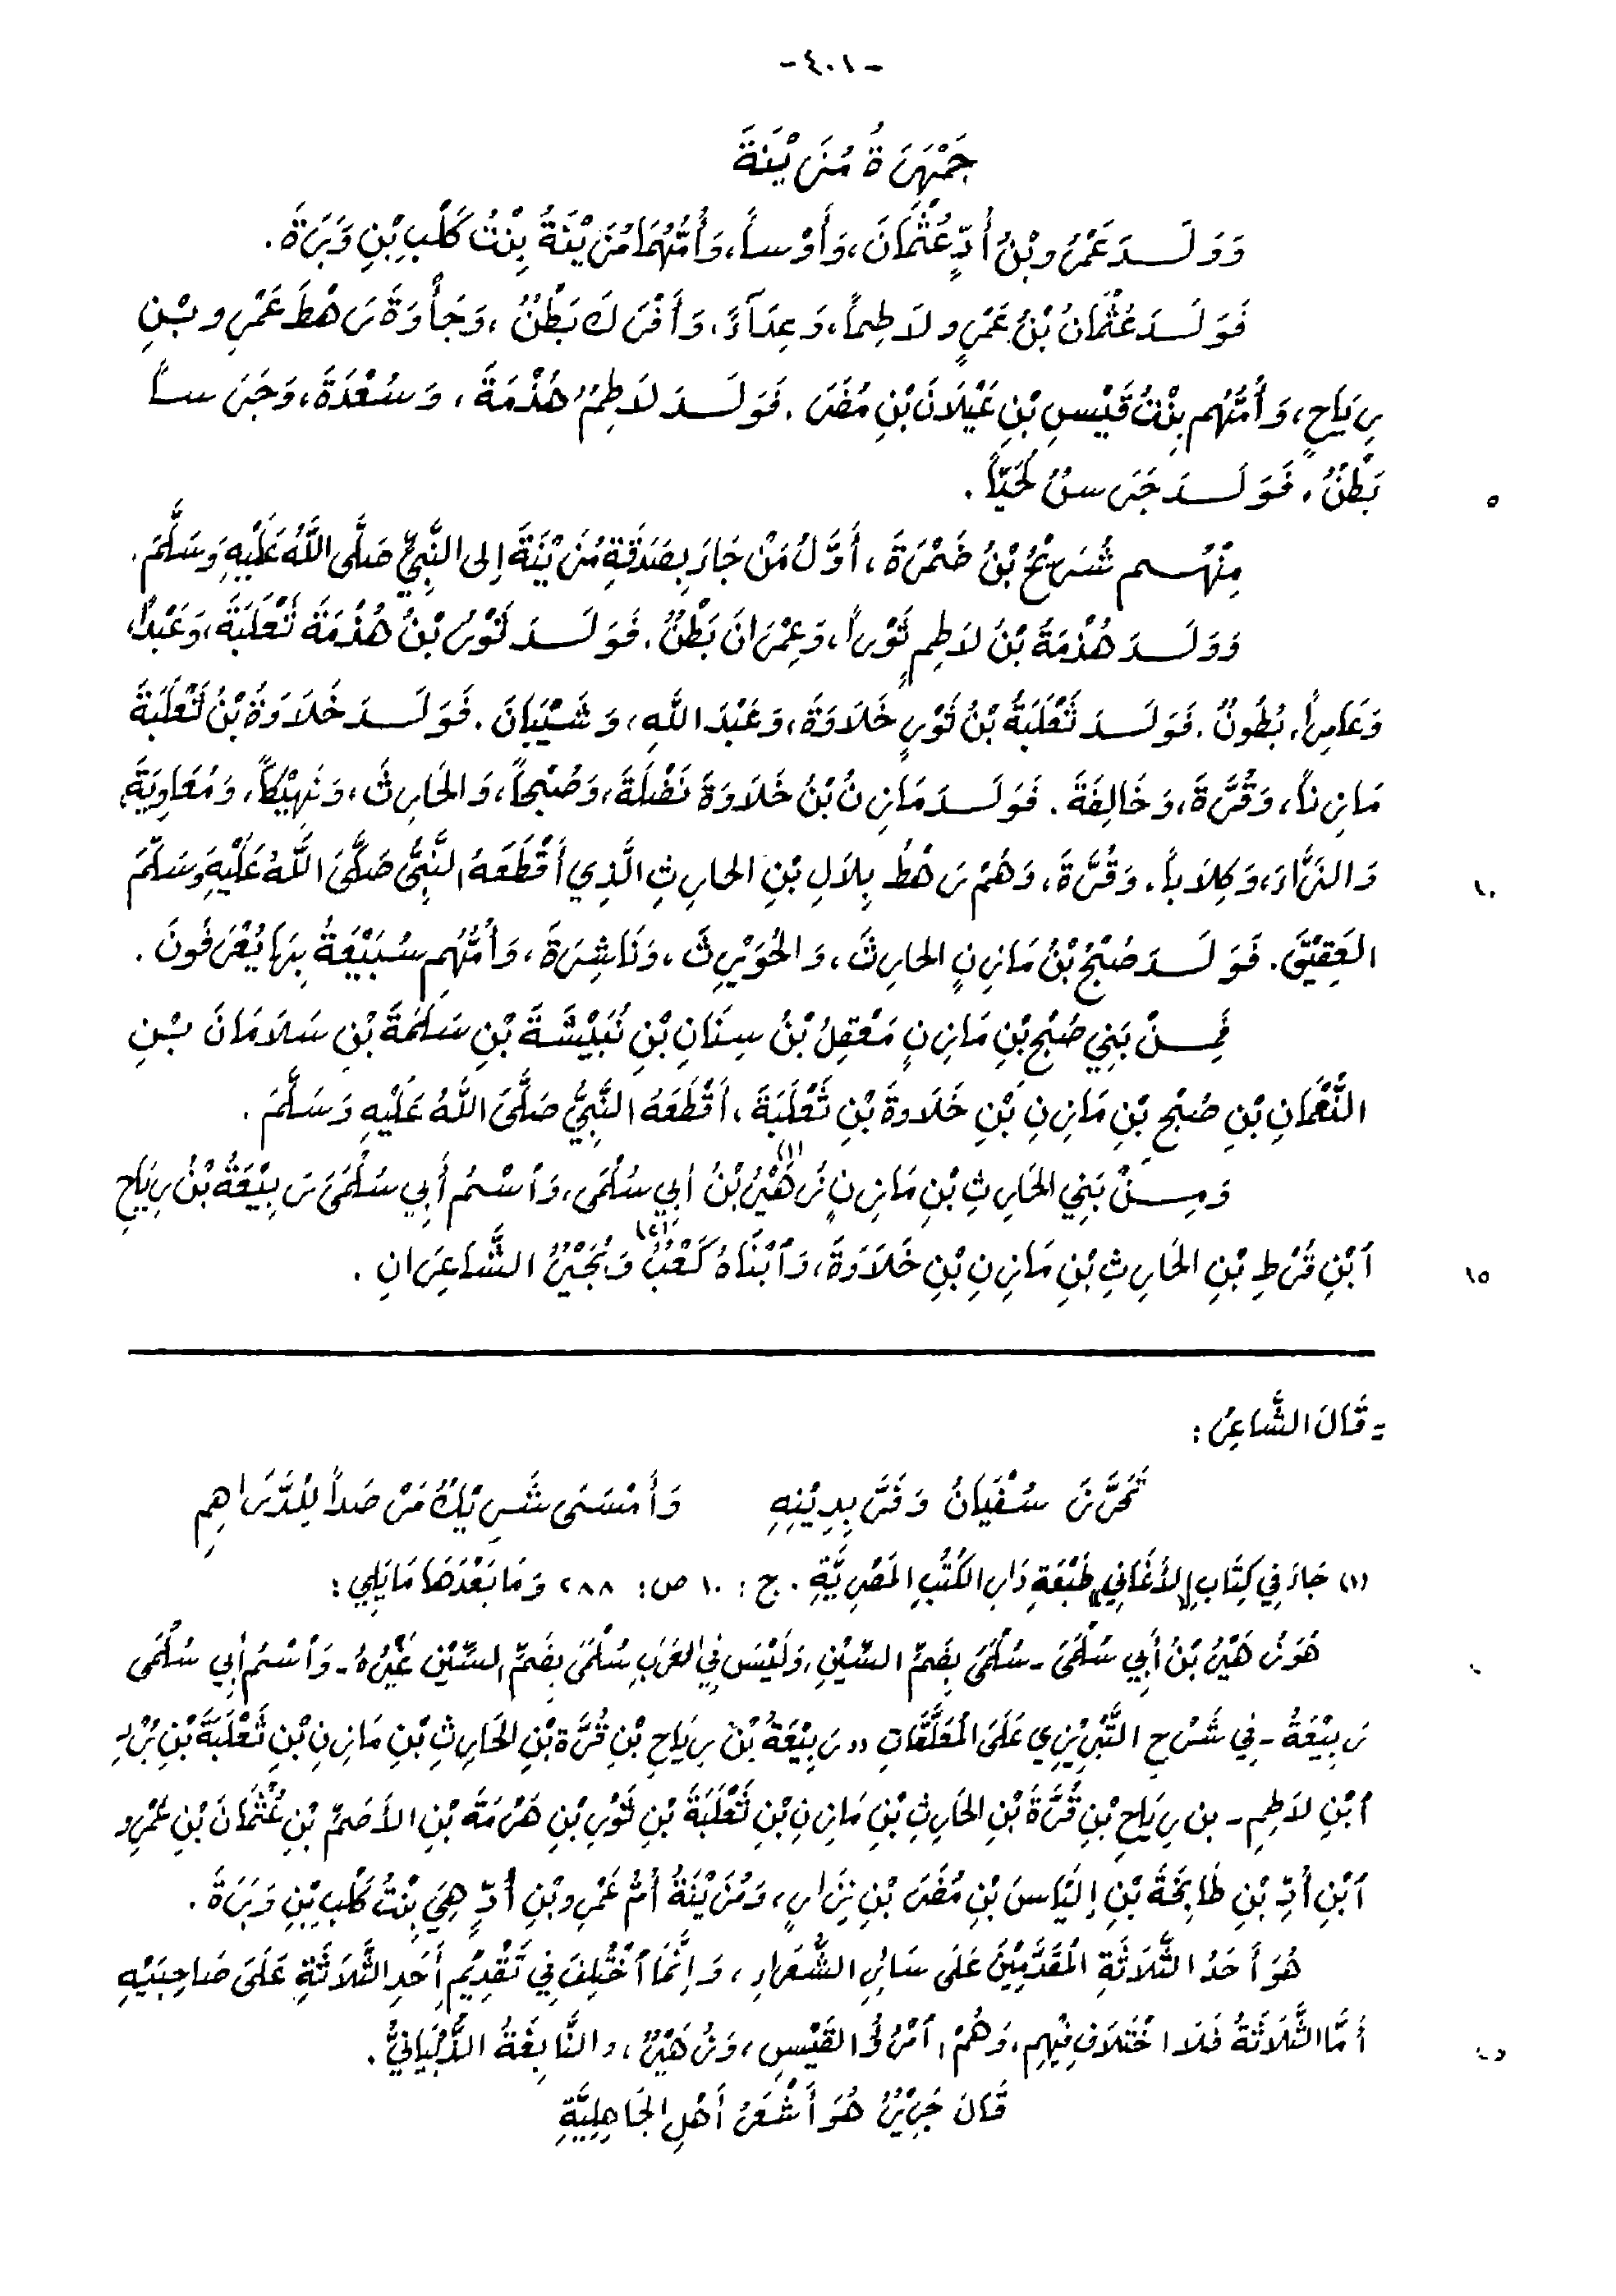 - ٤٠١ -
جَمْهَرَةُ مُزَيْنَةَ
وَوَلَدَ عَمْرُو بْنُ أُدٍّ عُثْمَانَ، وَأَوْساً، وَأُمُّهُمَا مُزَيْنَةُ بِنْتُ كَلْبِ بْنِ وَبَرَةَ.
فَوَلَدَ عُثْمَانُ بْنُ عَمْرٍو لاَطِماً، وَعِدَاءً، وَأَفْرَكَ بَطْنٌ، وَجَأْوَةَ رَهْطَ عَمْرِو بْنِ
رِيَاحٍ، وَأُمُّهُم بِنْتُ قَيْسِ بْنِ عَيْلاَنَ بْنِ مُضَرَ. فَوَلَدَ لاَطِمٌ هُذْمَةَ، وَسُعْدَةَ، وَجَرَساً
بَطْنٌ. فَوَلَدَ جَرَسٌ لُحَيّاً.
٥
مِنْهُم شُرَيْحُ بْنُ ضَمْرَةَ، أَوَّلُ مَنْ جَاءَ بِصَدَقَةِ مُزَيْنَةَ إلى النَّبِيِّ صَلَّى اللَّهُ عَلَيْهِ وَسَلَّمَ.
وَوَلَدَ هُذْمَةُ بْنُ لاَطِمٍ ثَوْراً، وَعِمْرَانَ بَطْنٌ. فَوَلَدَ ثَوْرُ بْنُ هُذْمَةَ ثَعْلَبَةَ، وَعَبْداً،
وَعَامِراً، بُطُونٌ. فَوَلَدَ ثَعْلَبَةُ بْنُ ثَوْرٍ خَلاَوَةَ، وَعَبْدَ اللَّهِ، وَشَيْبَانَ. فَوَلَدَ خَلاَوَةُ بْنُ ثَعْلَبَةَ
مَازِناً، وَقُرَّةَ، وَخَالِفَةَ. فَوَلَدَ مَازِنُ بْنُ خَلاَوَةَ نَضْلَةَ، وَصُبْحاً، وَالحَارِثَ، وَنَهِيْكاً، وَمُعَاوِيَةَ،
وَالنَّزَّاءَ، وَكِلاَباً. وَقُرَّةَ، وَهُمْ رَهْطُ بِلاَلِ بْنِ الحارِثِ الَّذِي أَقْطَعَهُ النَّبِيُّ صَلَّى اللَّهُ عَلَيْهِ وَسَلَّمَ
١٠
العَقِيْقَ. فَوَلَدَ صُبْحُ بْنُ مَازِنٍ الحارِثَ، وَالحُوَيْرِثَ، وَنَاشِرَةَ، وَأُمُّهُم سُبَيْعَةُ بِهَا يُعْرَفُونَ.
فَمِنْ بَنِي صُبْحِ بْنِ مَازِنٍ مَعْقِلُ بْنُ سِنَانِ بْنِ نُبَيْشَةَ بْنِ سَلَمَةَ بْنِ سَلاَمَانَ بْنِ
النُّعْمَانِ بْنِ صُبْحِ بْنِ مَازِنِ بْنِ خَلاَوةَ بْنِ ثَعْلَبَةَ، أَقْطَعَهُ النَّبِيُّ صَلَّى اللَّهُ عَلَيْهِ وَسَلَّمَ.
وَمِنْ بَنِي الحَارِثِ بْنِ مَازِنٍ زُهَيْرُ (١) بْنُ أبي سُلْمَى، وَٱسْمُ أَبِي سُلْمَى رَبِيْعَةُ بْنُ رِيَاحِ
ٱبْنِ قُرْطِ بْنِ الحَارِثِ بْنِ مَازِنِ بْنِ خَلاَوَةَ، وَٱبْنَاهُ كَعْبٌ (٢) وَبُجَيْرٌ الشَّاعِرَانِ.
١٥
= قَالَ الشَّاعِرُ:
تَحَرَّزَ سُفْيَانُ وَفَرَّ بِدِيْنِهِ وَأَمْسَى شَرِيْكٌ مَرْصَداً لِلدَّرَاهِمِ
(١) جَاءَ فِي كِتَابِ الأَغَانِي طَبْعَةِ دَارِ الكُتُبِ المَصْرِيَّةِ. ج: ١٠ ص: ٢٨٨ وَمَا بَعْدَهَا مَا يَلِي:
هُوَ زُهَيْرُ بْنُ أَبِي سُلْمَى - سُلْمَى بِضَمِّ السِّيْنِ، وَلَيْسَ فِي العَرَبِ سُلْمَى بِضَمِّ السِّيْنِ غَيْرُهُ - وَٱسْمُ أبي سُلْمَى
رَبِيْعَةُ - فِي شَرْحِ التَّبْرِيْزِي عَلَى المُعَلَّقَاتِ «رَبِيْعَةُ بْنُ رِيَاحِ بْنِ قُرَّةَ بْنِ الحَارِثِ بْنِ مَازِنِ بْنِ ثَعْلَبَةَ بْنِ بُرْدِ
ٱبْنِ لاَطِمِ - بن رِيَاحِ بْنِ قُرَّةَ بْنِ الحَارِثِ بْنِ مَازِنِ بْنِ ثَعْلَبَةَ بْنِ ثَوْرِ بْنِ هَرْمَةَ بْنِ الأَصَمِّ بْنِ عُثْمَانَ بْنِ عَمْرِو
ٱبْنِ أُدِّ بْنِ طَابِخَةَ بْنِ إِلْيَاسَ بْنِ مُضَرَ بْنِ نِزَارٍ، وَمُزَيْنَةُ أُمُّ عَمْرِو بْنِ أُدٍّ هِيَ بِنْتُ كَلْبِ بْنِ وَبَرَةَ.
هُوَ أَحَدُ الثَّلاَثَةِ المُقَدَّمِيْنَ عَلَى سَائِرِ الشُّعَرَاءِ، وَإِنَّمَا ٱخْتُلِفَ فِي تَقْدِيْمِ أَحَدِ الثَّلاَثَةِ عَلَى صَاحِبَيْهِ
أَمَّا الثَّلاَثَةُ فَلاَ اخْتَلاَفَ فِيْهِم، وَهُمْ، ٱمْرُؤُ القَيْسِ، وَزُهَيْرٌ، والنَّابِغَةُ الذُّبْيَانِيُّ.
قَالَ جَرِيْرٌ هُوَ أَشْعَرُ أَهْلِ الجَاهِلِيَّةِ